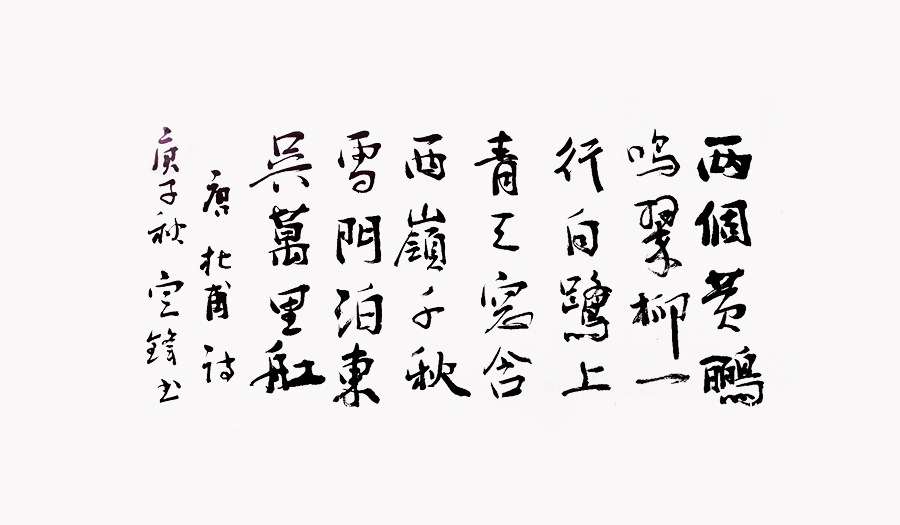 两個黄鸝
鳴翠柳一
行白鷺上
青天窓含
西嶺千秋
雪門泊東
吳萬里舡
唐杜甫詩
庚子秋 定鋒书